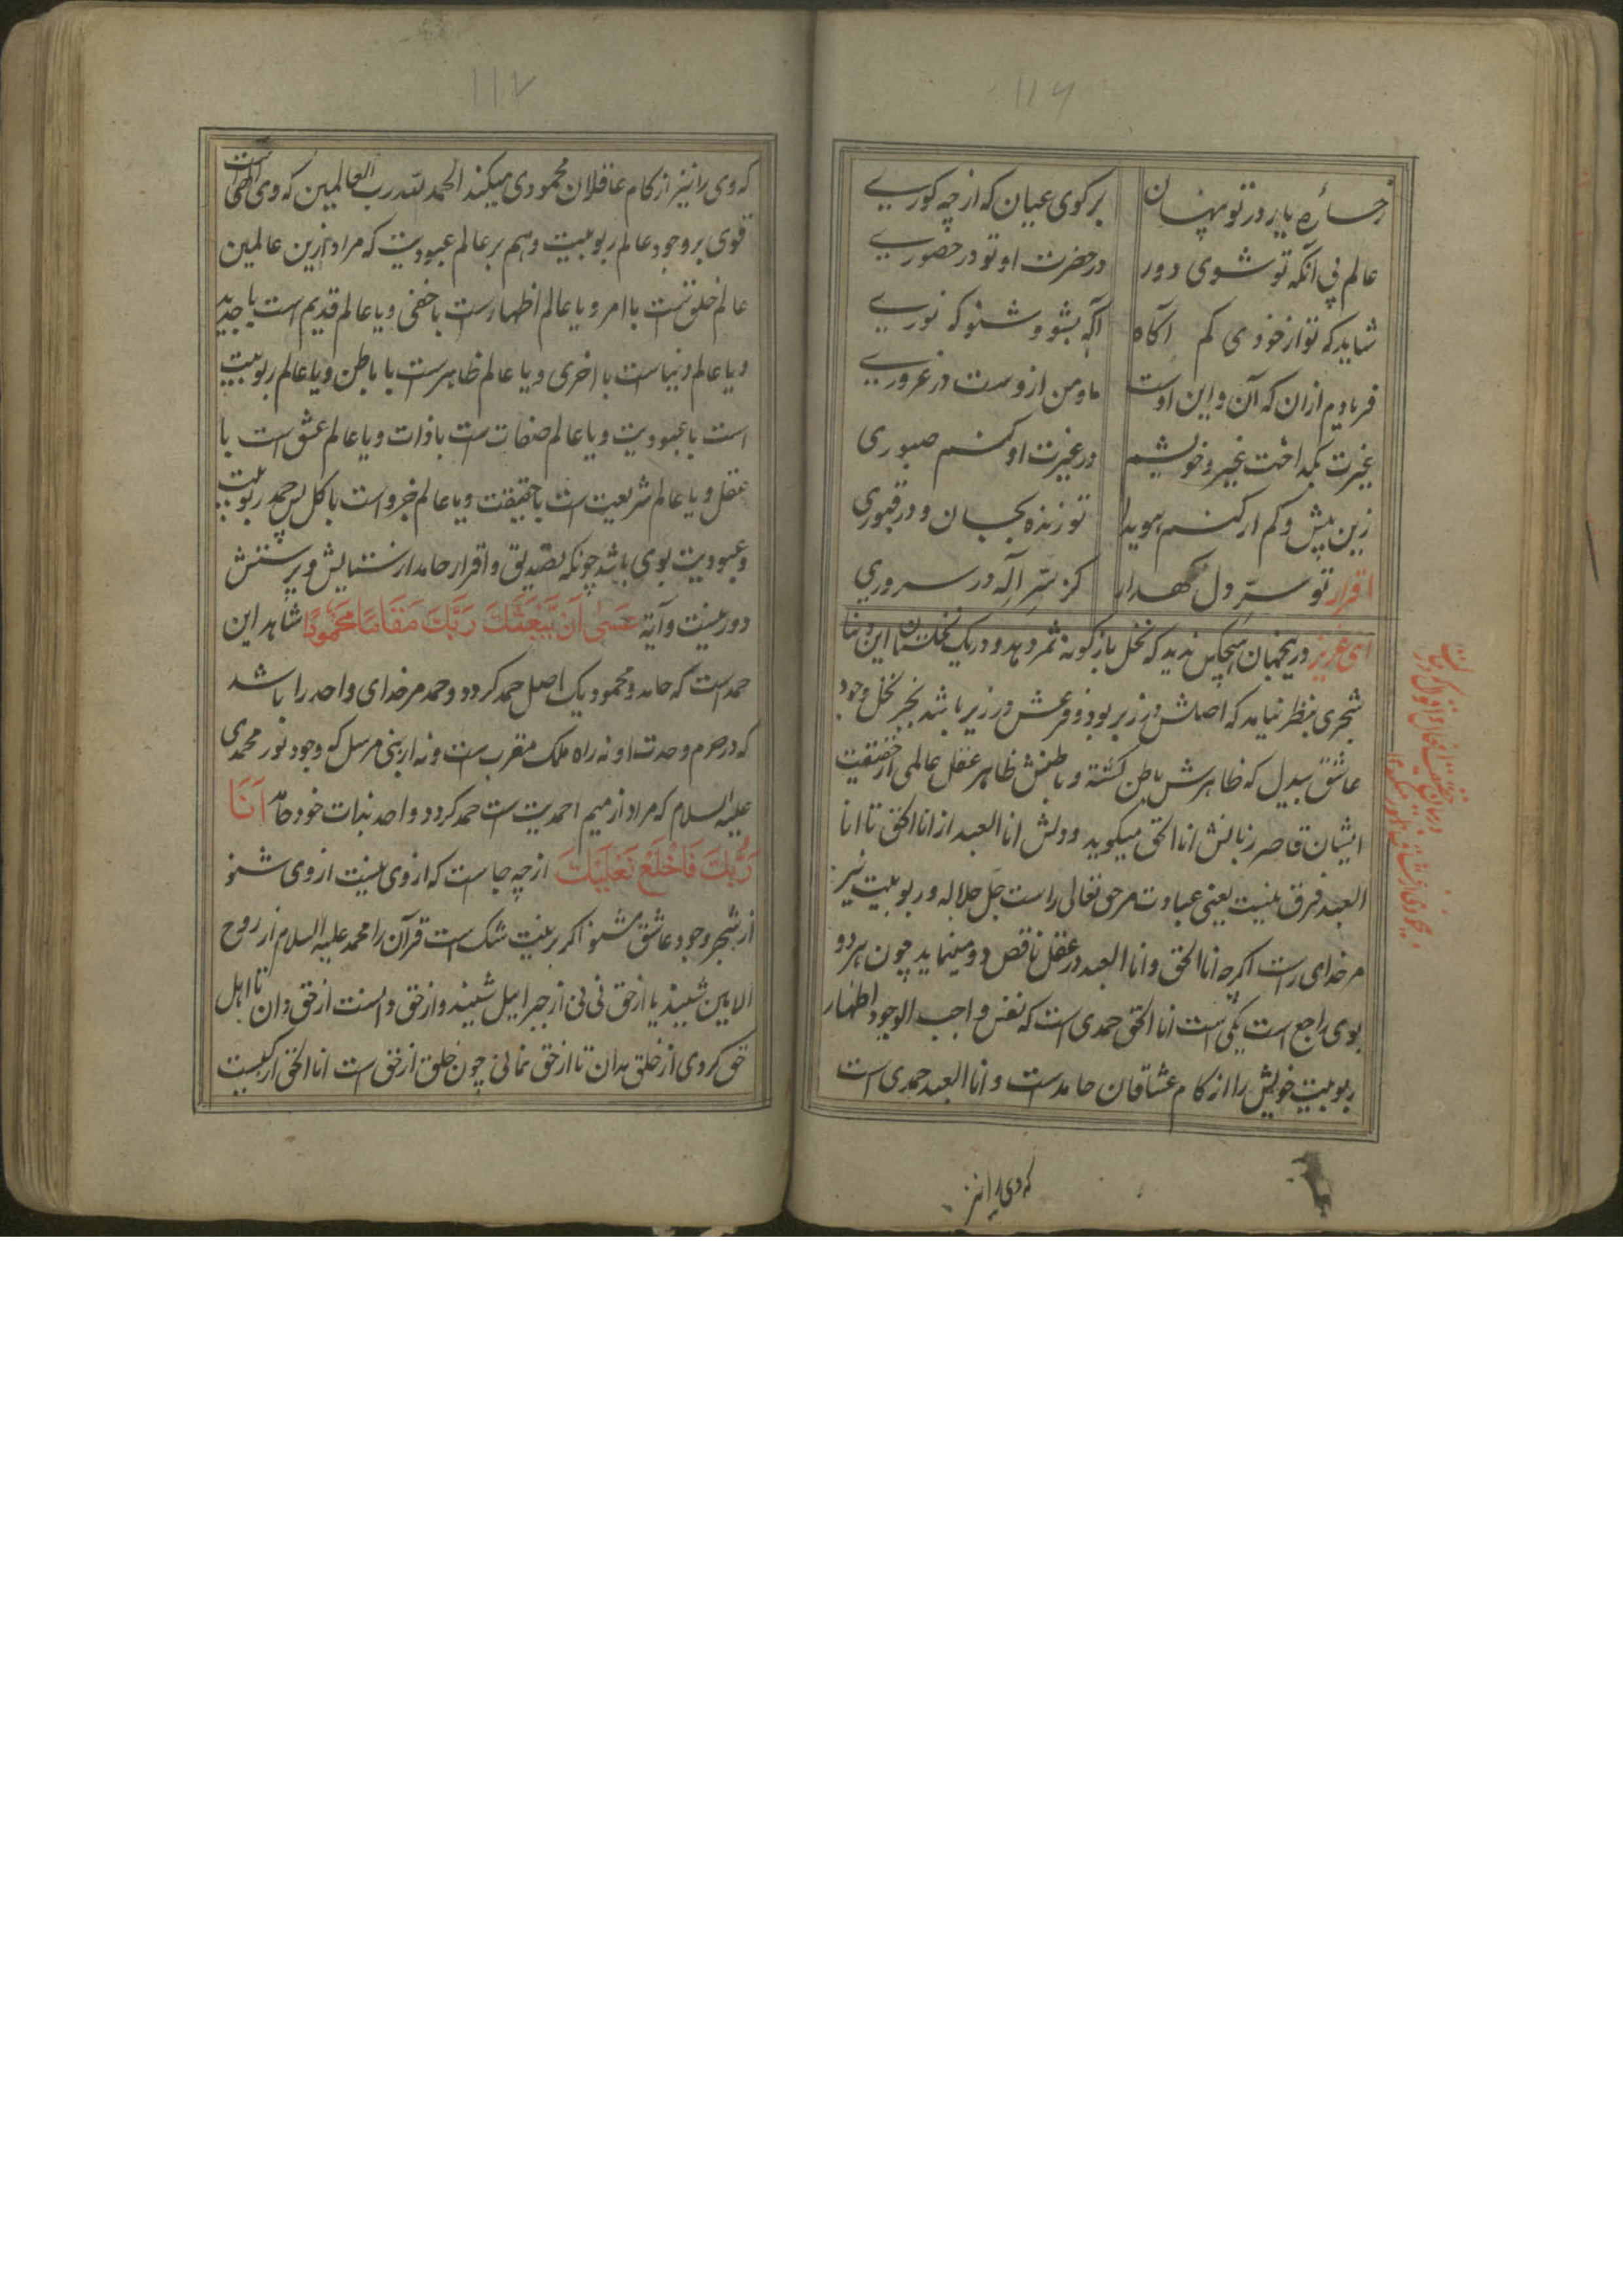 ۱۱۶
رخساره یار در تو پنهان
برکوی عیان که از چه کوری
عالم پی آنکه تو شوی دور
در حضرت او تو در حضوری
شاید که تو از خودی کم آکاه
آکه بشو و شنو که نوری
فریادم ازان که آن و این اوست
ما و من ازوست در غروری
غیرت بکداخت غیر و خویشم
در غیرت او کنم صبوری
زین بیش و کم ار کنم هویدا
تو زنده بجان و در قبوری
اقرار تو سر دل نکهدار
کز سر اله در سروری
ای عزیز درینجهان هیچکس ندید که نخل باژکونه ثمر دهد و در یک نخلستان این دنیا
شجری بنظر نیاید که اصلش در زبر بود و فرعش در زیر باشد بجز نخل وجود
عاشق بیدل که ظاهرش باطن کشته و باطنش ظاهر عقل عالمی از حقیقت
ایشان قاصر زبانش انا الحق میکوید و دلش انا العبد از انا الحق تا انا
العبد فرق نیست یعنی عبادت مر حق تعالی راست جل جلاله و ربوبیت نیز
مر خدای راست اکرچه انا الحق و انا العبد در عقل ناقص دو مینماید چون هر دو
بوی راجع است یکی است انا الحق حمدی است که نفس واجب الوجود اظهار
ربوبیت خویش را از کام عشاقان حامدست و انا العبد حمدی است
که وی را نیز
۱۱۷
که وی را نیز از کام عاقلان محمودی میکند الحمد لله رب العالمین که وی است
قوی بر وجود عالم ربوبیت و هم بر عالم عبودیت که مراد ازین عالمین
عالم خلق است یا امر و یا عالم اظهارست یا خفی و یا عالم قدیم است یا جدید
و یا عالم دنیاست یا اخری و یا عالم ظاهرست یا باطن و یا عالم ربوبیت
است یا عبودیت و یا عالم صفات ست یا ذات و یا عالم عشق است یا
عقل و یا عالم شریعت است یا حقیقت و یا عالم جزو است یا کل پس حمد ربوبیت
و عبودیت بوی باشد چونکه تصدیق و اقرار حامد از ستایش و پرستش
دور نیست و آیة عَسَىٰ أَنْ يَبْعَثَكَ رَبُّكَ مَقَامًا مَحْمُودًا شاهد این
حمد است که حامد و محمود یک اصل حمد کردد و حمد مر خدای واحد را باشد
که در حرم وحدت او نه راه ملک مقرب ست و نه ار نبی مرسل کو وجود نور محمدی
علیه السلام که مراد از میم احمدیت ست حمد کردد و احد بذات خود حامد اَنَا
رَبُّكَ فَاخْلَعْ نَعْلَيْكَ از چه جاست که از وی نیست از وی شنو
از شجر وجود عاشق مشنو اکر بر نیت شک است قرآن را محمد علیه السلام از روح
الامین شنید یا از حق نی نی از جبرائیل شنید و از حق دانست از حق دان تا اهل
حق کردی از خلق مدان تا از حق نمانی چون خلق از حق است انا الحق از کیست